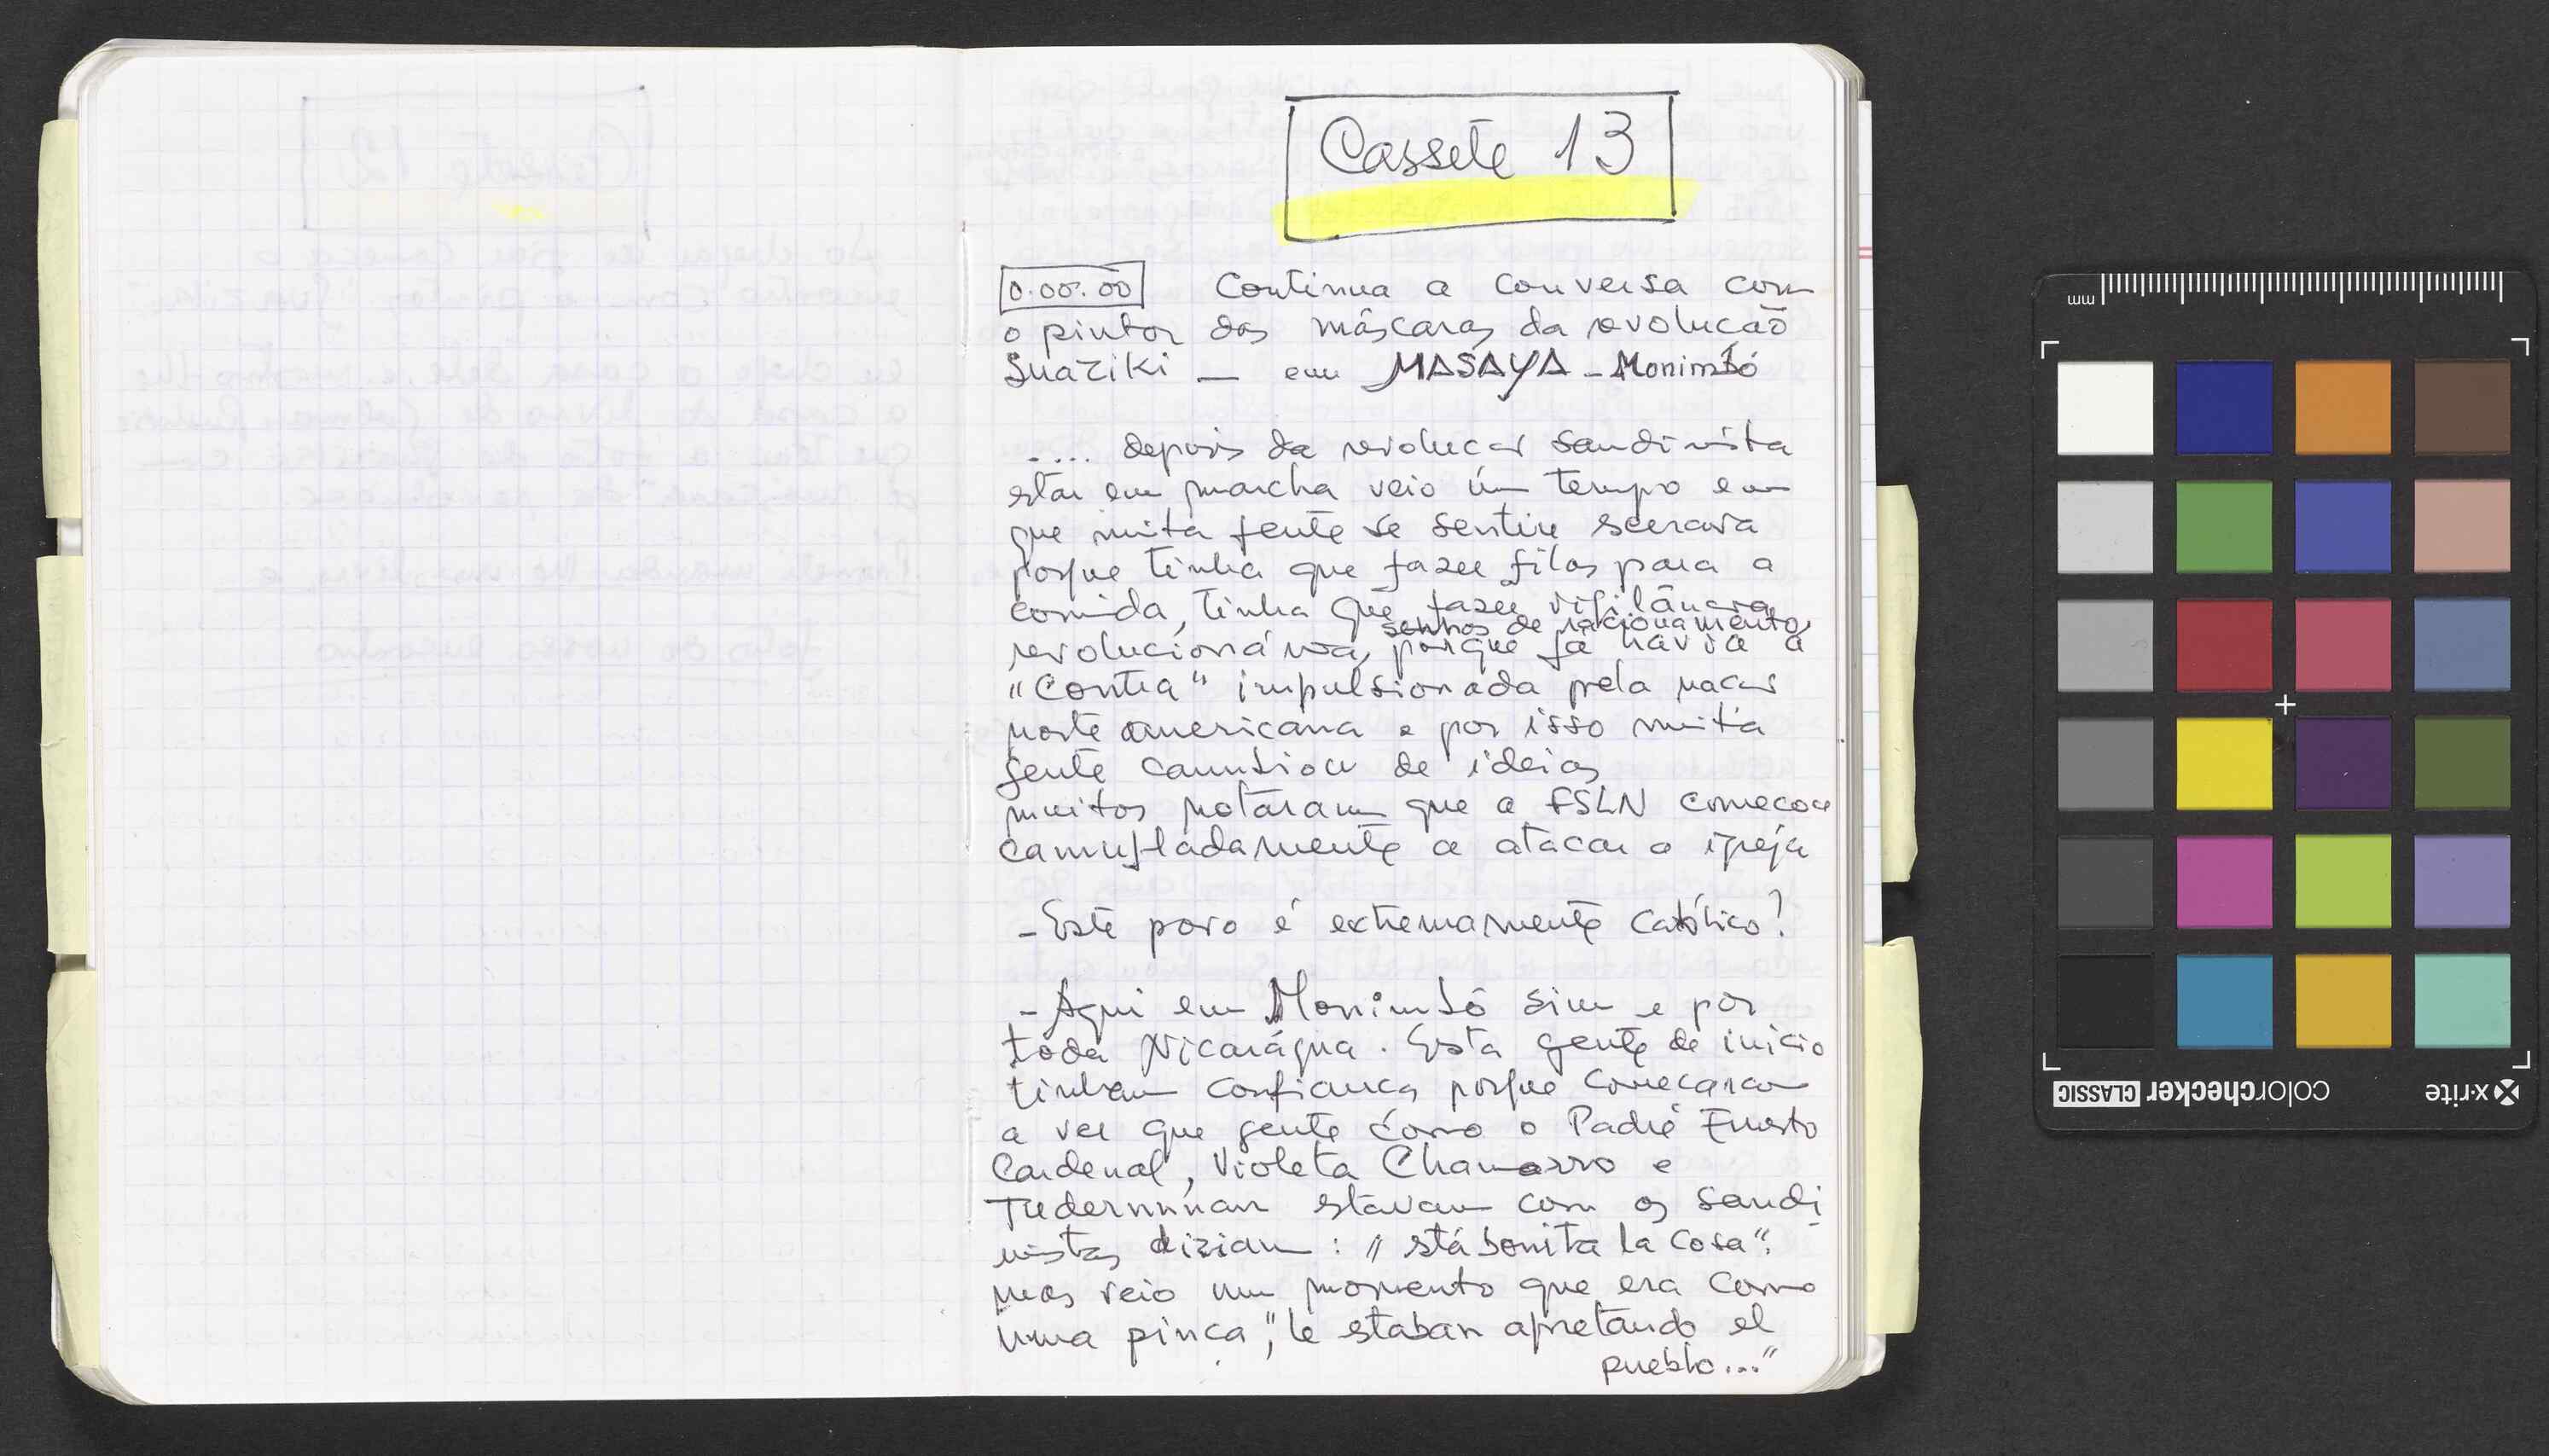 Cassete 13
0.00.00 Continua a conversa com
o pintor das máscaras da revolucaõ
Suaziki — em MASAYA - Monimbó
.... depois da revolucaõ sandinista
estar em marcha veio um tempo em
que muita gente se sentiu
porque tinha que fazer filas para a
comida, tinha que fazer vigilância
senhas de racionamento,
revolucionária, porque já havia a
"Contra" impulsionada pela nacaõ
norte americana e por isso muita
gente cambiou de ideias
muitos notaram que a FSLN comecou
camufladamente a atacar a igreja
- Este povo é extremamente católico?
- Aqui em Monimbó sim e por
toda Nicarágua. Esta gente de inicio
tinham confianca porque comecaram
a ver que gente como o Padre Ernesto
Cardenal, Violeta Chamorro e
estavam com os sandi
nistas diziam: "stá bonita la cosa".
mas veio um momento que era como
uma pinca, "le staban apretando el
pueblo..."
mm
x-rite colorchecker CLASSIC